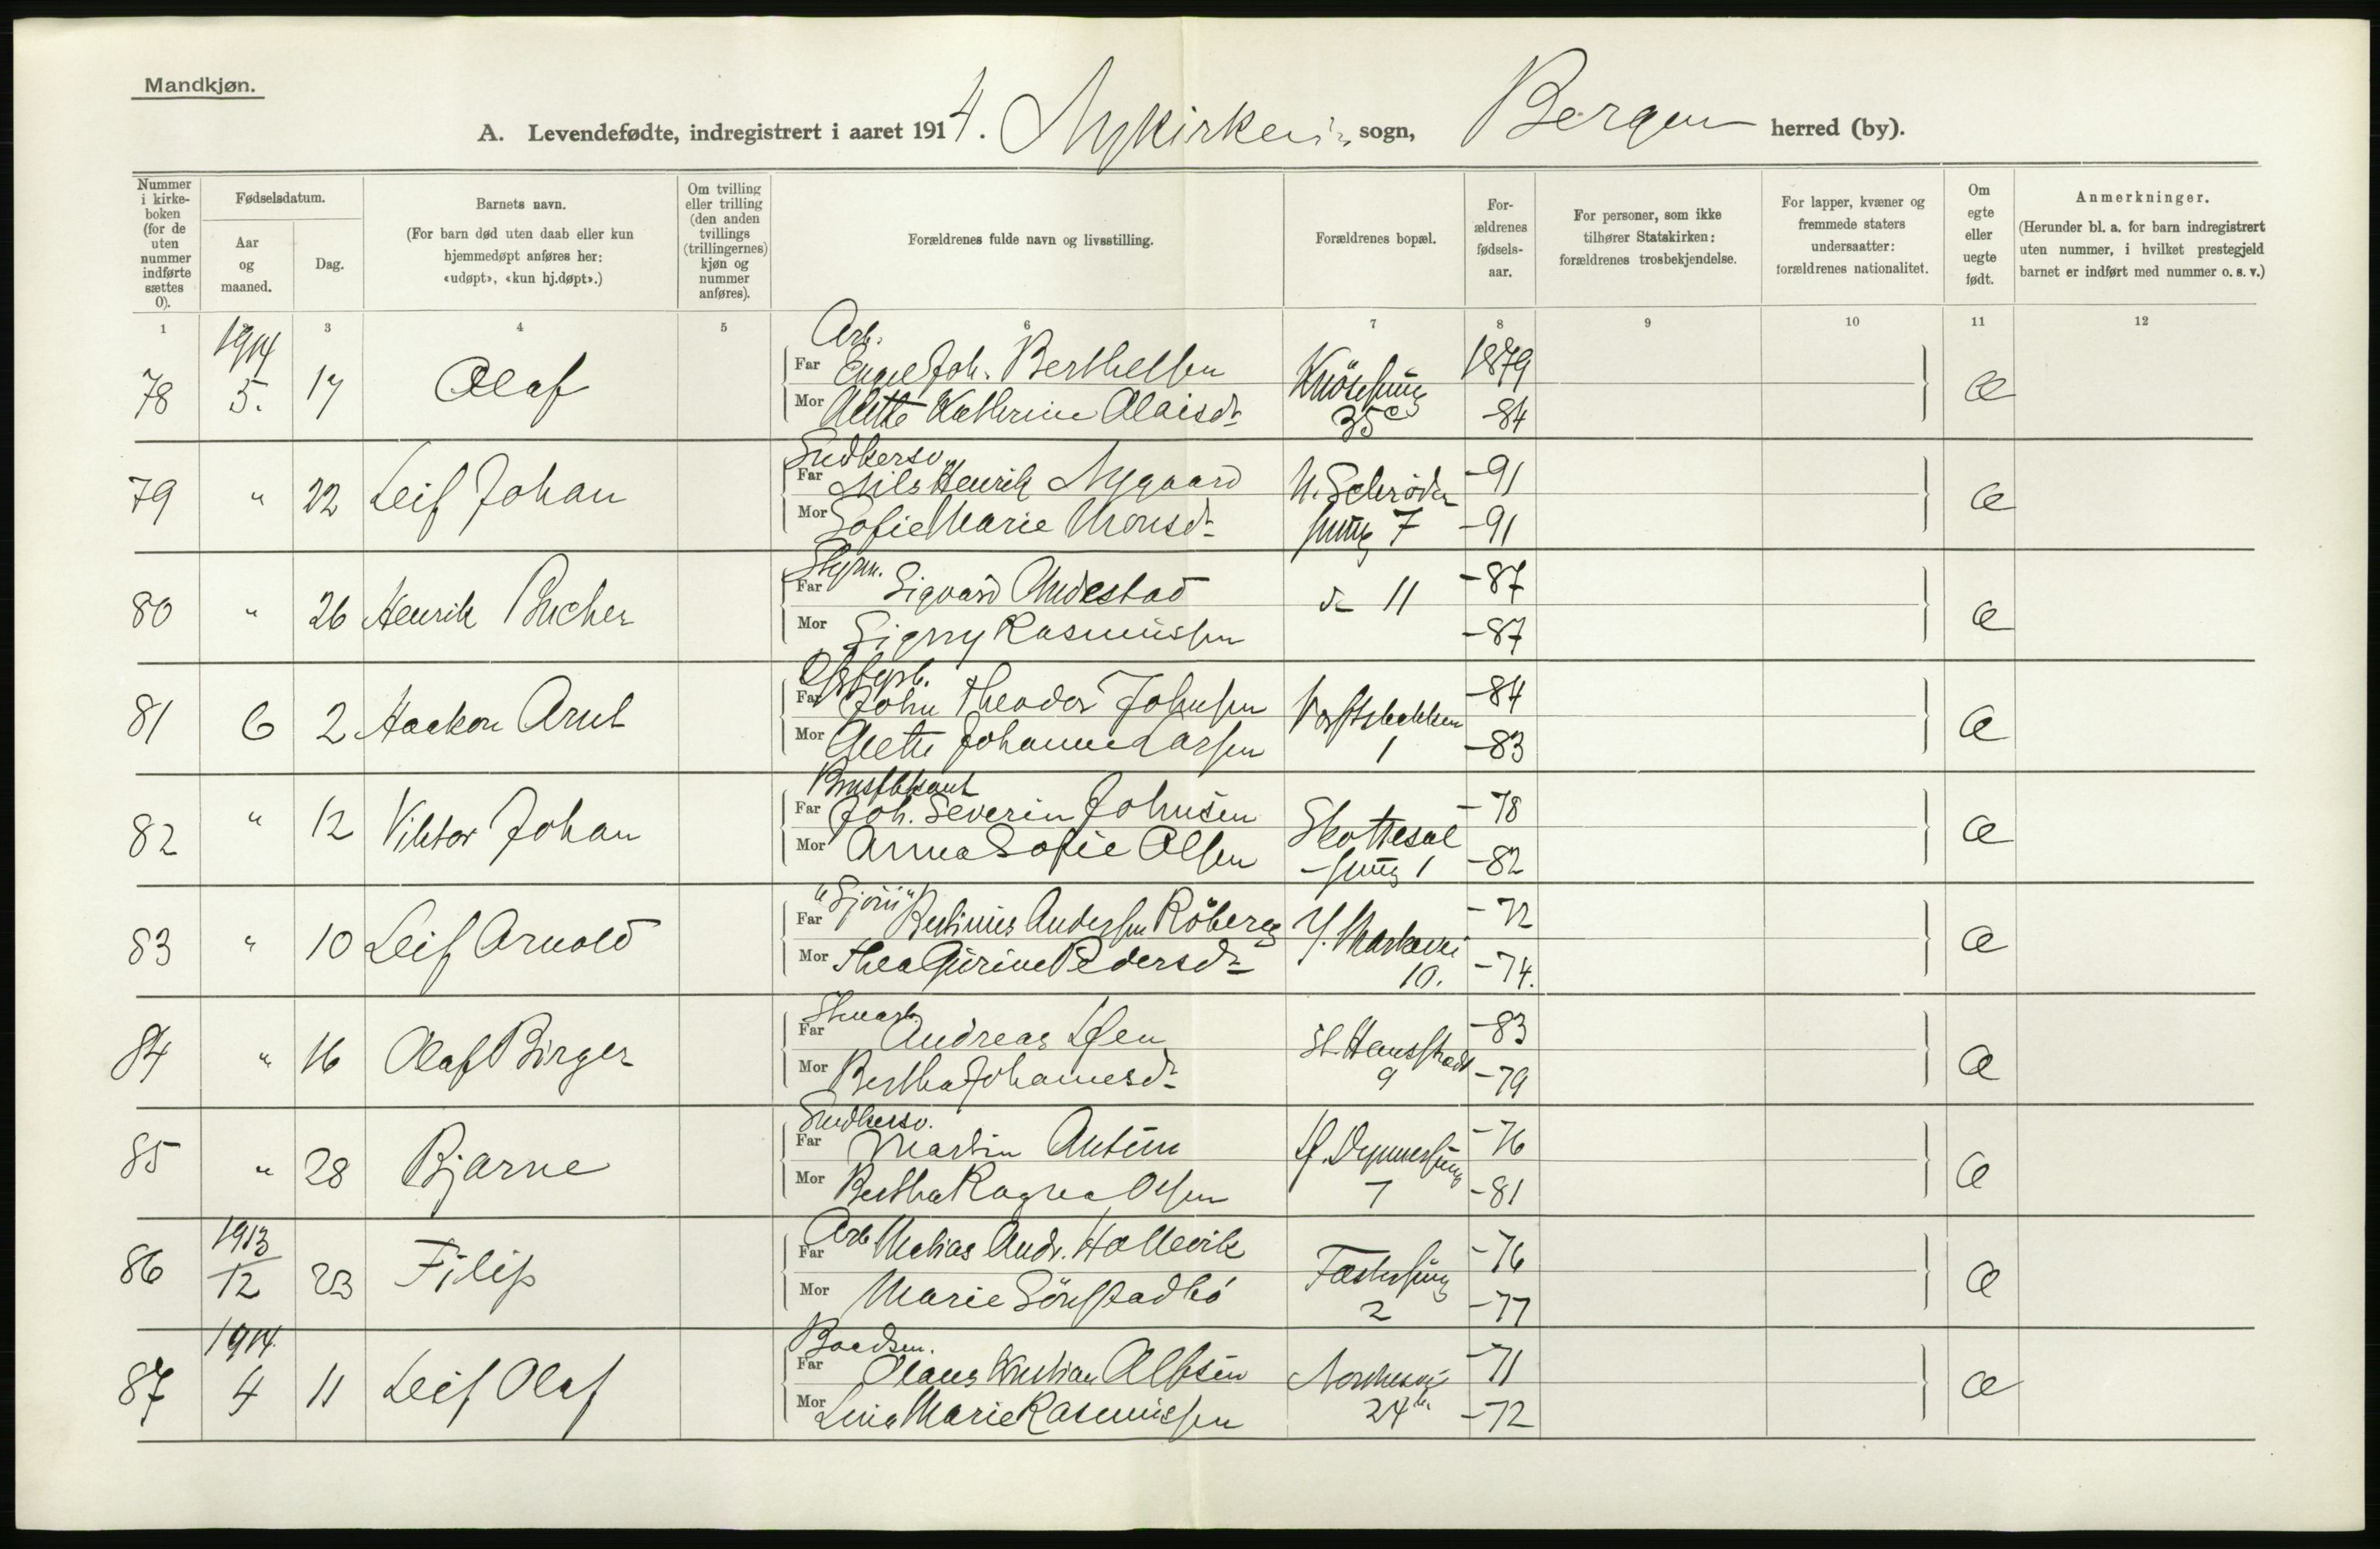 Mandkjøn.
A. Levendefødte, indregistrert i aaret 1914. Nykirkens sogn, Bergen herred (by).
Nummer i kirke-boken (for de uten nummer indførte sættes 0).
Fødselsdatum.
Aar og maaned.
Dag.
Barnets navn.
(For barn død uten daab eller kun hjemmedøpt anføres her: «udøpt», «kun hj.døpt».)
Om tvilling eller trilling (den anden tvillings (trillingernes) kjøn og nummer anføres).
Forældrenes fulde navn og livsstilling.
Forældrenes bopæl.
For-ældrenes fødsels-aar.
For personer, som ikke tilhører Statskirken: forældrenes trosbekjendelse.
For lapper, kvæner og fremmede staters undersaatter: forældrenes nationalitet.
Om egte eller uegte født.
Anmerkninger.
(Herunder bl. a. for barn indregistrert uten nummer, i hvilket prestegjeld barnet er indført med nummer o. s. v.)
1 3 4 5 6 7 8 9 10 11 12
1914 Arb.
Far Joh. Berthelsen 1879
78 5. 17 Olaf Æ
Mor Alette Kathrine Olaisdr 35c -84
Snedkersv.
Far Nils Henrik Nygaard N. Schrøder -91
79 " 22 Leif Johan Æ
Mor Sofie Marie Monsdr smug 7 -91
Styrm.
Far Sigvard Andestad -87
80 " 26 Henrik Bucher do 11 Æ
Mor Signy Rasmussen -87
Far John Theodor Johnsen -84
81 6 2 Haakon Arnt 1 Æ
Mor Alette Johanne Larsen -83
Far Joh. Severin Johnsen -78
82 " 12 Viktor Johan Skottesal Æ
Mor Anna Sofie Olsen -smug 1 -82
Far Bertinius Andersen Röberg -72
83 " 10 Leif Arnold Y. Markevei Æ
Mor Thea Gurine Pedersdr 10. -74.
Far Andreas Løen -83
84 " 16 Olaf Birger St. Hansstræde Æ
Mor Bertha Johannesdr 9 -79
Snedkersv.
Far Martin Antun -76
85 " 28 Bjarne Æ
Mor Bertha Ragna Olsen 7 -81
1913 Arb
Far Mathias Andr. Hollevik -76
86 12 23 Filip Æ
Mor Marie 2 -77
1914. Baadsm.
Far Olaus Kristian Albsen -71
87 4 11 Leif Olaf Æ
Mor Lina Marie Rasmussen 24 -72